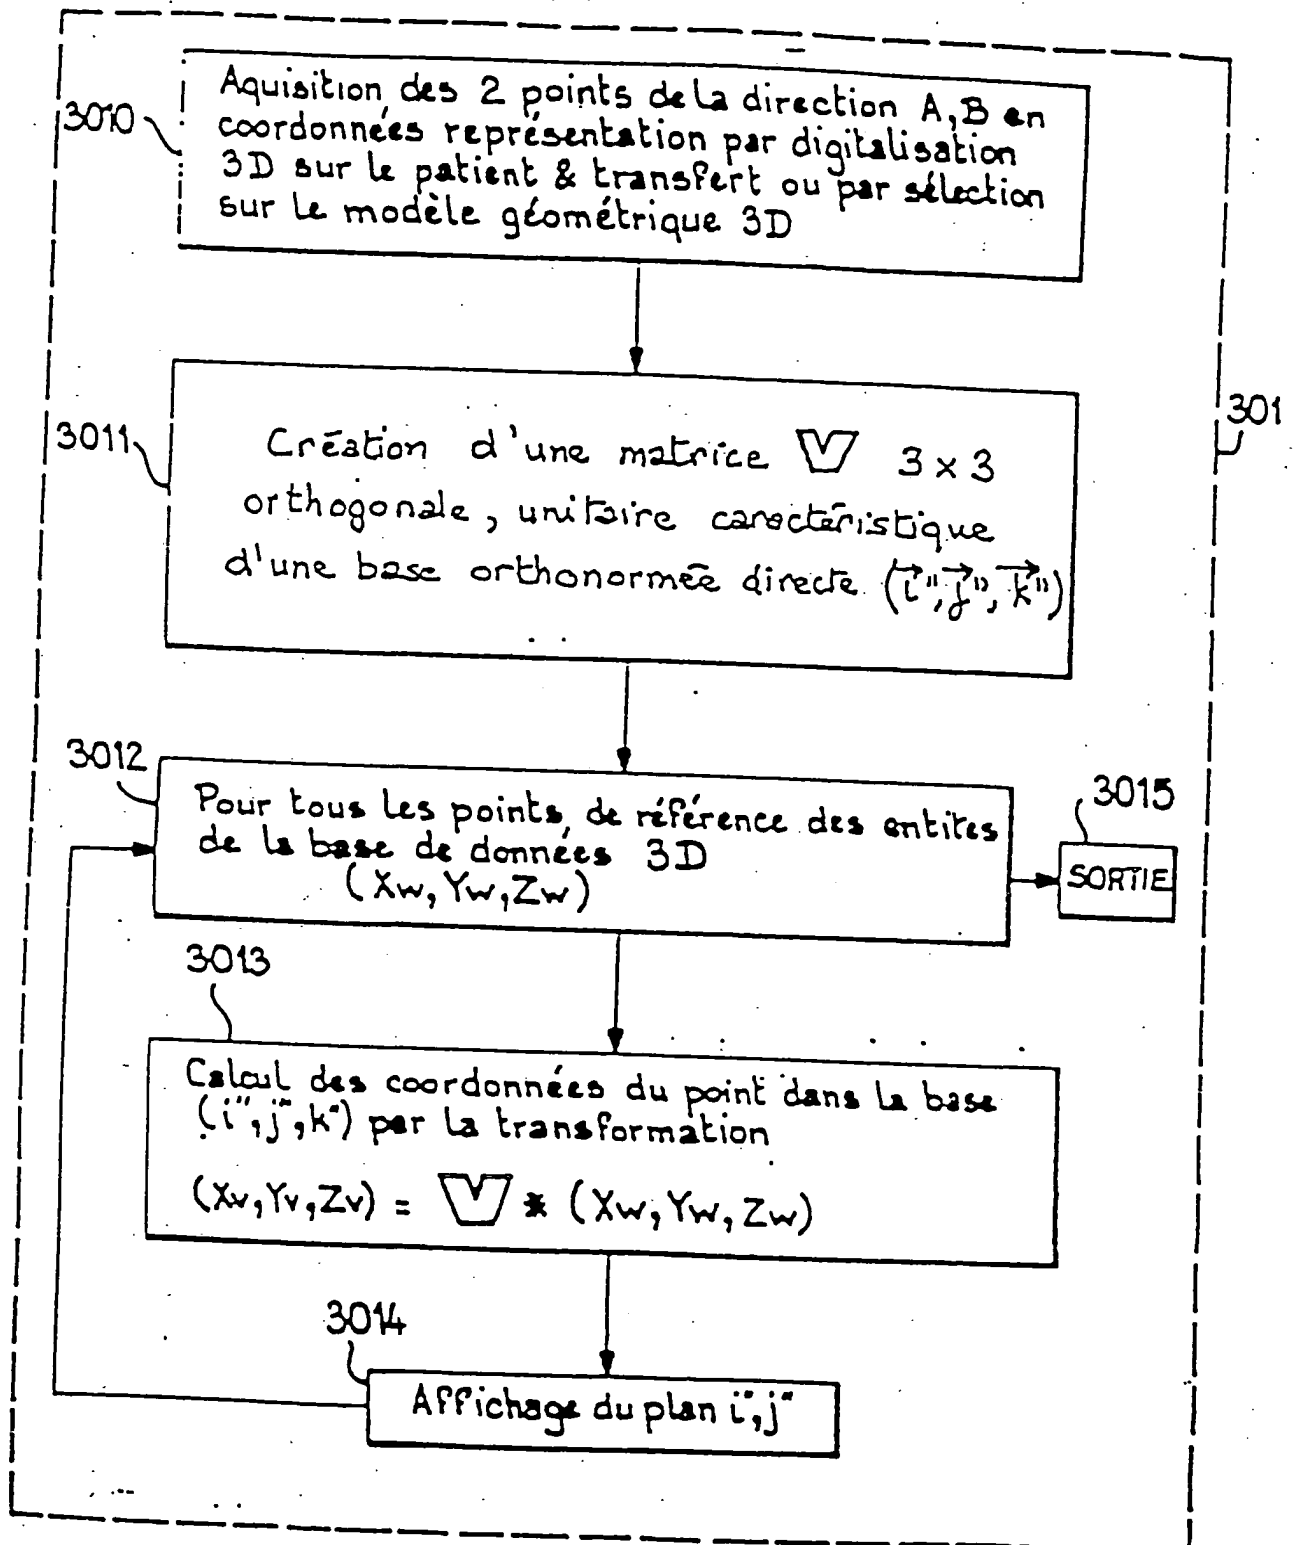 3010
Aquisition des 2 points de la direction A,B en
coordonnées représentation par digitalisation
3D sur le patient & transfert ou par sélection
sur le modèle géométrique 3D
301
3011
Création d'une matrice V 3 x 3
orthogonale, unitaire caractéristique
d'une base orthonormée directe (i",j",k")
3012
Pour tous les points, de référence des entites
de la base de données 3D
(Xw,Yw,Zw)
3015
SORTIE
3013
Calcul des coordonnées du point dans la base
(i",j",k") par la transformation
(Xv,Yv,Zv) = V * (Xw,Yw,Zw)
3014
Affichage du plan i",j"